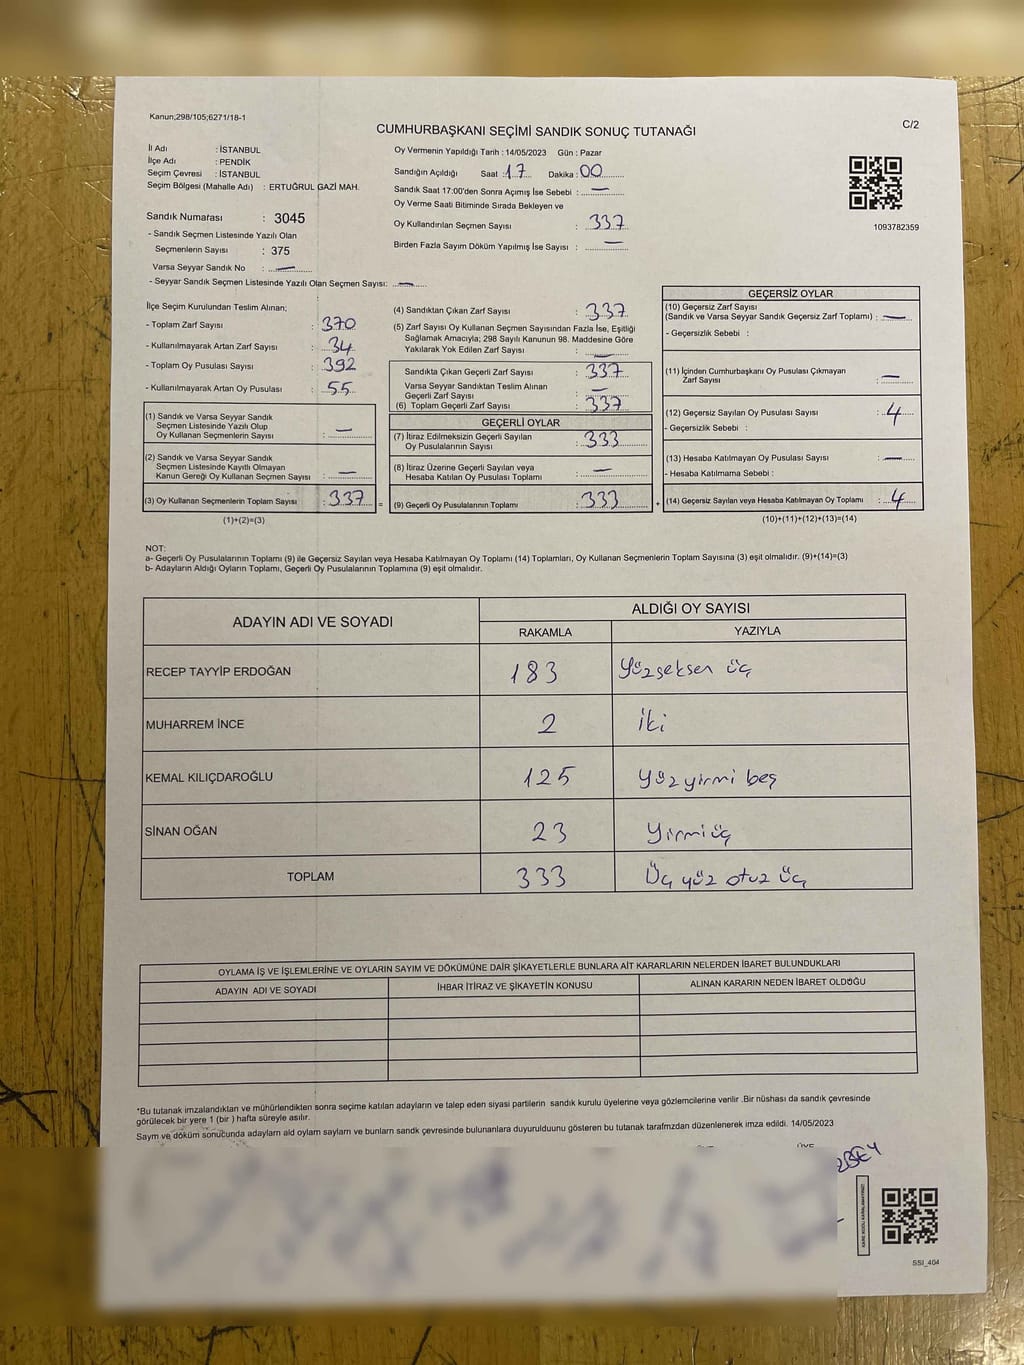 Kanun;298/105;6271/18-1
C/2
CUMHURBAŞKANI SEÇİMİ SANDIK SONUÇ TUTANAĞI
İl Adı : İSTANBUL
İlçe Adı : PENDİK
Seçim Çevresi : İSTANBUL
Seçim Bölgesi (Mahalle Adı) : ERTUĞRUL GAZİ MAH.
Sandık Numarası : 3045
- Sandık Seçmen Listesinde Yazılı Olan
Seçmenlerin Sayısı : 375
Varsa Seyyar Sandık No : —
- Seyyar Sandık Seçmen Listesinde Yazılı Olan Seçmen Sayısı: —
Oy Vermenin Yapıldığı Tarih : 14/05/2023 Gün : Pazar
Sandığın Açıldığı Saat : 17 Dakika : 00
Sandık Saat 17:00'den Sonra Açımış İse Sebebi : —
Oy Verme Saati Bitiminde Sırada Bekleyen ve
Oy Kullandırılan Seçmen Sayısı : 337
Birden Fazla Sayım Döküm Yapılmış İse Sayısı : —
1093782359
İlçe Seçim Kurulundan Teslim Alınan;
- Toplam Zarf Sayısı : 370
- Kullanılmayarak Artan Zarf Sayısı : 34
- Toplam Oy Pusulası Sayısı : 392
- Kullanılmayarak Artan Oy Pusulası : 55
(1) Sandık ve Varsa Seyyar Sandık
Seçmen Listesinde Yazılı Olup
Oy Kullanan Seçmenlerin Sayısı : —
(2) Sandık ve Varsa Seyyar Sandık
Seçmen Listesinde Kayıtlı Olmayan
Kanun Gereği Oy Kullanan Seçmen Sayısı : —
(3) Oy Kullanan Seçmenlerin Toplam Sayısı : 337 =
(1)+(2)=(3)
(4) Sandıktan Çıkan Zarf Sayısı : 337
(5) Zarf Sayısı Oy Kullanan Seçmen Sayısından Fazla İse, Eşitliği
Sağlamak Amacıyla; 298 Sayılı Kanunun 98. Maddesine Göre
Yakılarak Yok Edilen Zarf Sayısı : —
Sandıkta Çıkan Geçerli Zarf Sayısı : 337
Varsa Seyyar Sandıktan Teslim Alınan
Geçerli Zarf Sayısı : —
(6) Toplam Geçerli Zarf Sayısı : 337
GEÇERLİ OYLAR
(7) İtiraz Edilmeksizin Geçerli Sayılan
Oy Pusulalarının Sayısı : 333
(8) İtiraz Üzerine Geçerli Sayılan veya
Hesaba Katılan Oy Pusulası Toplamı : —
(9) Geçerli Oy Pusulalarının Toplamı : 333 +
GEÇERSİZ OYLAR
(10) Geçersiz Zarf Sayısı
(Sandık ve Varsa Seyyar Sandık Geçersiz Zarf Toplamı) : —
- Geçersizlik Sebebi :
(11) İçinden Cumhurbaşkanı Oy Pusulası Çıkmayan
Zarf Sayısı : —
(12) Geçersiz Sayılan Oy Pusulası Sayısı : 4
- Geçersizlik Sebebi :
(13) Hesaba Katılmayan Oy Pusulası Sayısı : —
- Hesaba Katılmama Sebebi :
(14) Geçersiz Sayılan veya Hesaba Katılmayan Oy Toplamı : 4
(10)+(11)+(12)+(13)=(14)
NOT:
a- Geçerli Oy Pusulalarının Toplamı (9) ile Geçersiz Sayılan veya Hesaba Katılmayan Oy Toplamı (14) Toplamları, Oy Kullanan Seçmenlerin Toplam Sayısına (3) eşit olmalıdır. (9)+(14)=(3)
b- Adayların Aldığı Oyların Toplamı, Geçerli Oy Pusulalarının Toplamına (9) eşit olmalıdır.
ADAYIN ADI VE SOYADI ALDIĞI OY SAYISI
RAKAMLA YAZIYLA
RECEP TAYYİP ERDOĞAN 183 Yüzseksen üç
MUHARREM İNCE 2 iki
KEMAL KILIÇDAROĞLU 125 Yüzyirmi beş
SİNAN OĞAN 23 Yirmiüç
TOPLAM 333 Üç yüz otuz üç
OYLAMA İŞ VE İŞLEMLERİNE VE OYLARIN SAYIM VE DÖKÜMÜNE DAİR ŞİKAYETLERLE BUNLARA AİT KARARLARIN NELERDEN İBARET BULUNDUKLARI
ADAYIN ADI VE SOYADI İHBAR İTİRAZ VE ŞİKAYETİN KONUSU ALINAN KARARIN NEDEN İBARET OLDUĞU
*Bu tutanak imzalandıktan ve mühürlendikten sonra seçime katılan adayların ve talep eden siyasi partilerin sandık kurulu üyelerine veya gözlemcilerine verilir .Bir nüshası da sandık çevresinde
görülecek bir yere 1 (bir ) hafta süreyle asılır.
Sayım ve döküm sonucunda adayların ald oyların sayları ve bunların sandk çevresinde bulunanlara duyurulduunu gösteren bu tutanak tarafmzdan düzenlenerek imza edildi. 14/05/2023
SSI_404